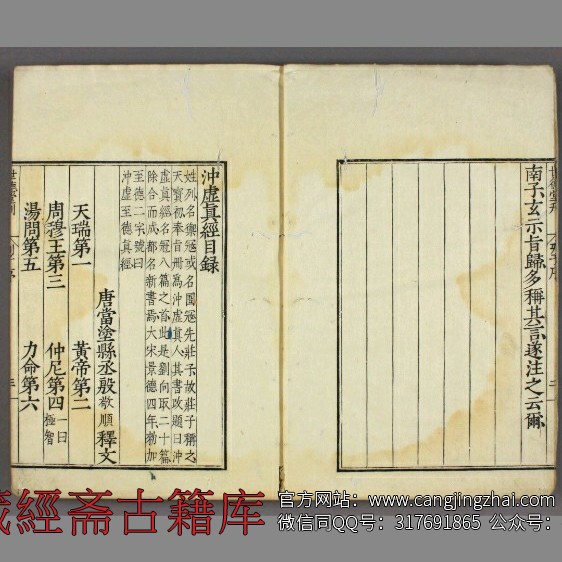 南子玄示旨歸多稱其言遂注之云爾
沖虛真經目録
姓列名禦冠或名圄冠先莊子故莊子稱之
天寶初奉旨冊爲沖虛真人其書改題曰沖
虛真經名冠八篇之首此是劉向取二十篇
除合而成都名新書焉大宋景德四年勑加
至德二字號曰
沖虛至德真經
唐當塗縣丞殷敬順釋文
天瑞第一 黃帝第二
周穆王第三 仲尼第四一曰極智
湯問第五 力命第六
世德堂刊
藏經斋古籍库
官方网站：www.cangjingzhai.com
微信同QQ号：317691865 公众号：